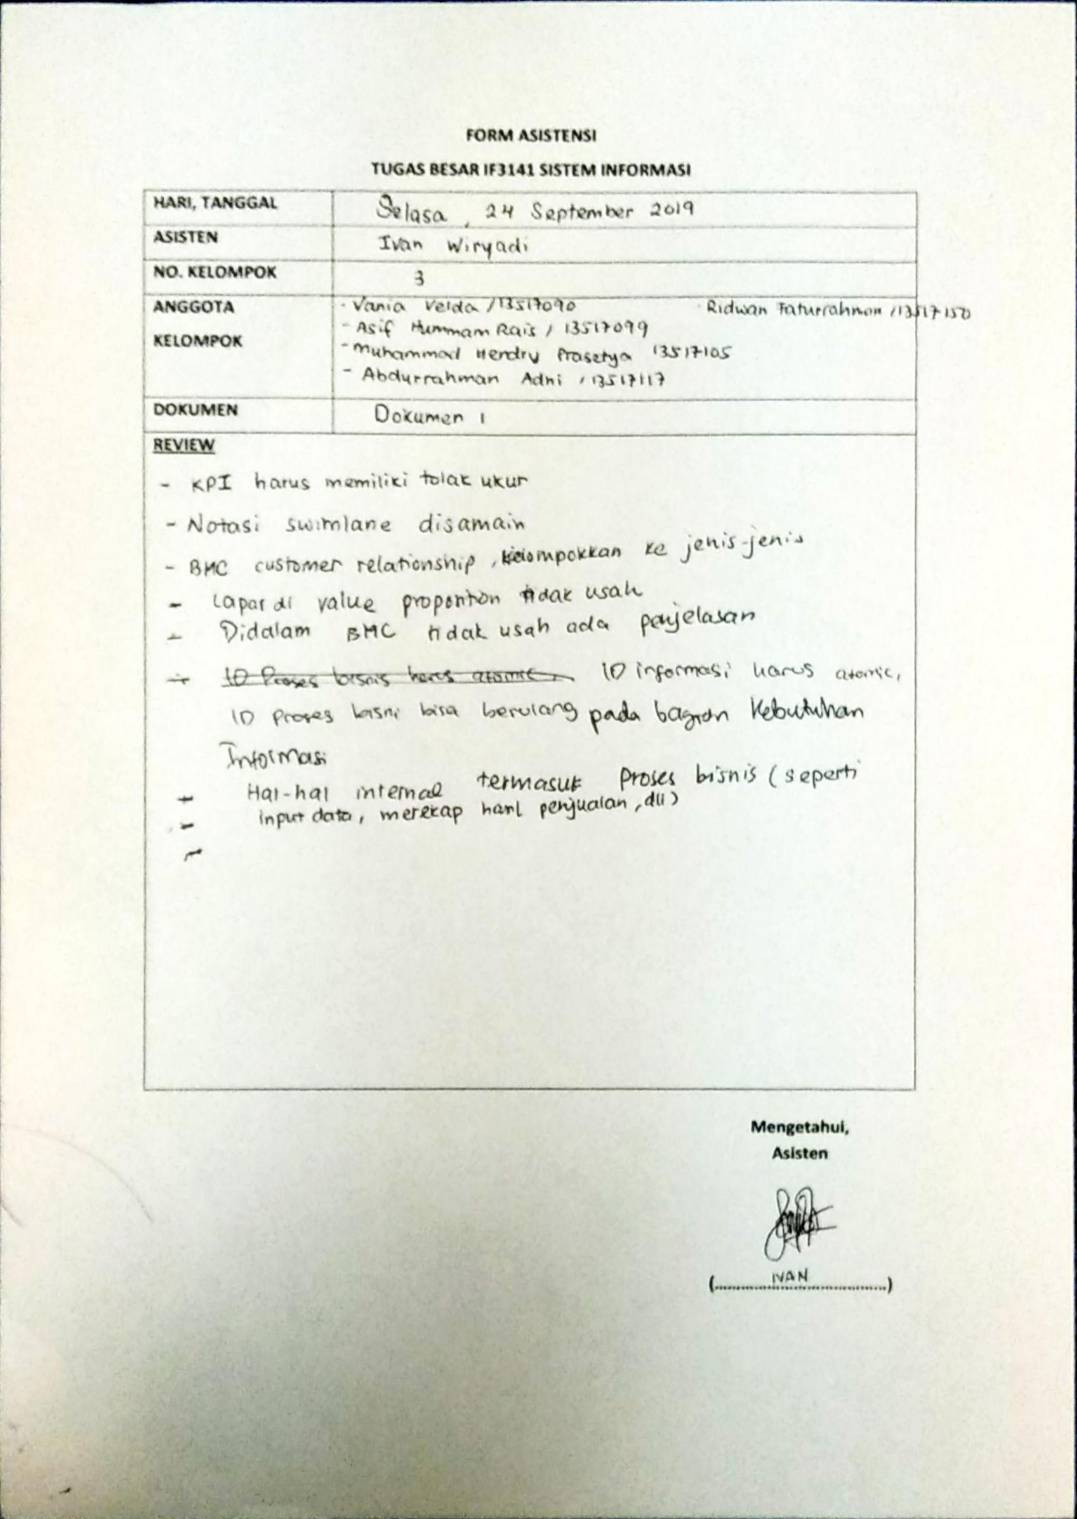 FORM ASISTENSI
TUGAS BESAR IF3141 SISTEM INFORMASI
HARI, TANGGAL Selasa, 24 September 2019
ASISTEN Ivan Wiryadi
NO. KELOMPOK 3
ANGGOTA KELOMPOK
- Vania Velda / 13517090
- Ridwan Faturrahman / 13517150
- Asif Hummam Rais / 13517099
- Muhammad Hendry Prasetya 13517105
- Abdurrahman Adni / 13517117
DOKUMEN Dokumen 1
REVIEW
- KPI harus memiliki tolak ukur
- Notasi swimlane disamain
- BMC customer relationship, kelompokkan ke jenis-jenis
- Lapar di value proporition tidak usah
- Didalam BMC tidak usah ada penjelasan
- ID Proses bisnis harus atomic, ID informasi harus atomic,
ID Proses bisni bisa berulang pada bagian Kebutuhan
Informasi
- Hal-hal internal termasuk Proses bisnis (seperti
- input data, merekap hasil penjualan, dll)
-
Mengetahui,
Asisten
(IVAN)